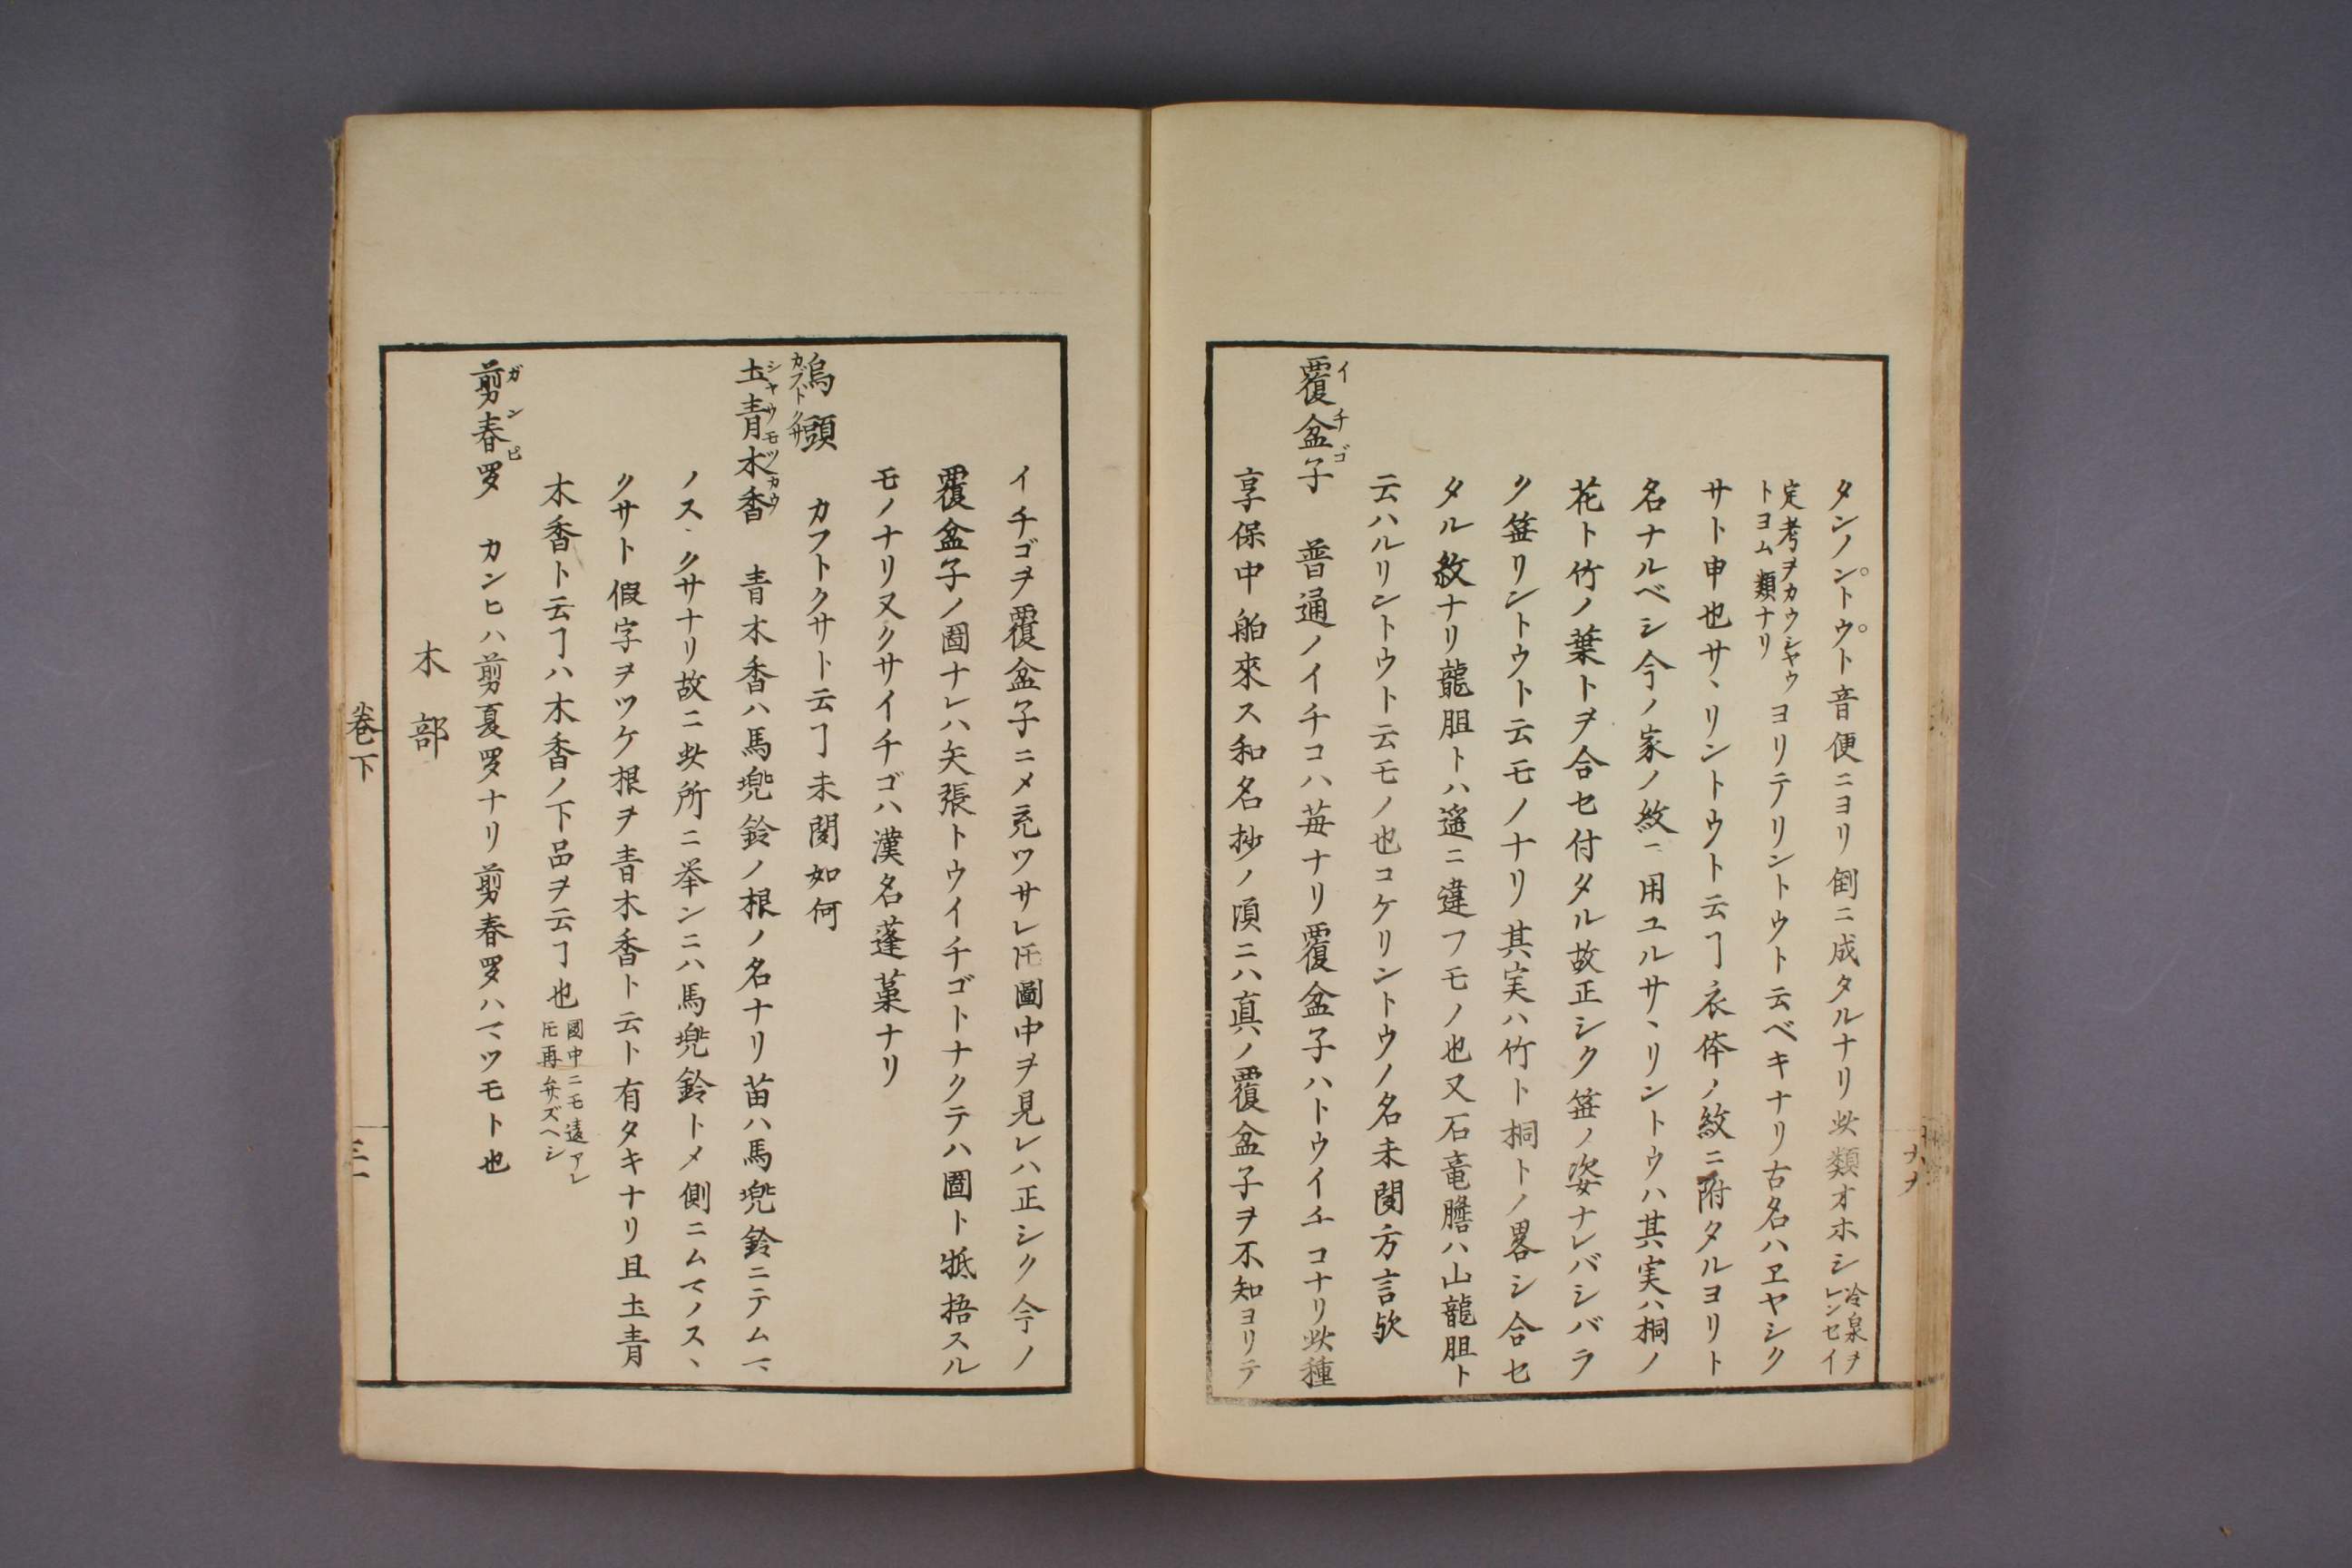 タンノントウト音便ニヨリ倒ニ成タルナリ此類オホシ冷泉ヲレンセイ
定考ヲカウシヤウトヨム類ナリヨリテリントウト云ベキナリ古名ハヱヤシク
サト申也サヽリントウト云ヿ衣体ノ紋ニ附タルヨリト
名ナルベシ今ノ家ノ紋ニ用ユルサヽリントウハ其実ハ桐ノ
花ト竹ノ葉トヲ合セ付タル故正シク笹ノ姿ナレバシバラ
ク笹リントウト云モノナリ其実ハ竹ト桐トノ畧シ合セ
タル紋ナリ龍胆トハ遥ニ違フモノ也又石竜膽ハ山龍胆ト
云ハルリントウト云モノ也コケリントウノ名未聞方言欤
覆盆子イチゴ 普通ノイチコハ苺ナリ覆盆子ハトウイチコナリ此種
享保中舶來ス和名抄ノ頃ニハ真ノ覆盆子ヲ不知ヨリテ
イチゴヲ覆盆子ニメ充ツサレ𪜈圖中ヲ見レハ正シク今ノ
覆盆子ノ圖ナレハ矢張トウイチゴトナクテハ圖ト牴捂スル
モノナリ又クサイチゴハ漢名蓬藁ナリ
烏頭カブトクサ カフトクサト云ヿ未聞如何
土青木香シヤウモツカウ 青木香ハ馬兠鈴ノ根ノ名ナリ苗ハ馬兠鈴ニテムマ
ノスヽクサナリ故ニ此所ニ举ンニハ馬兠鈴トメ側ニムマノスヽ
クサト假字ヲツケ根ヲ青木香ト云ト有タキナリ且土青
木香ト云ヿハ木香ノ下品ヲ云ヿ也國中ニモ遠アレ𪜈再弁ズヘシ
剪春罗ガンピ カンヒハ剪夏罗ナリ剪春罗ハマツモト也
木部
卷下